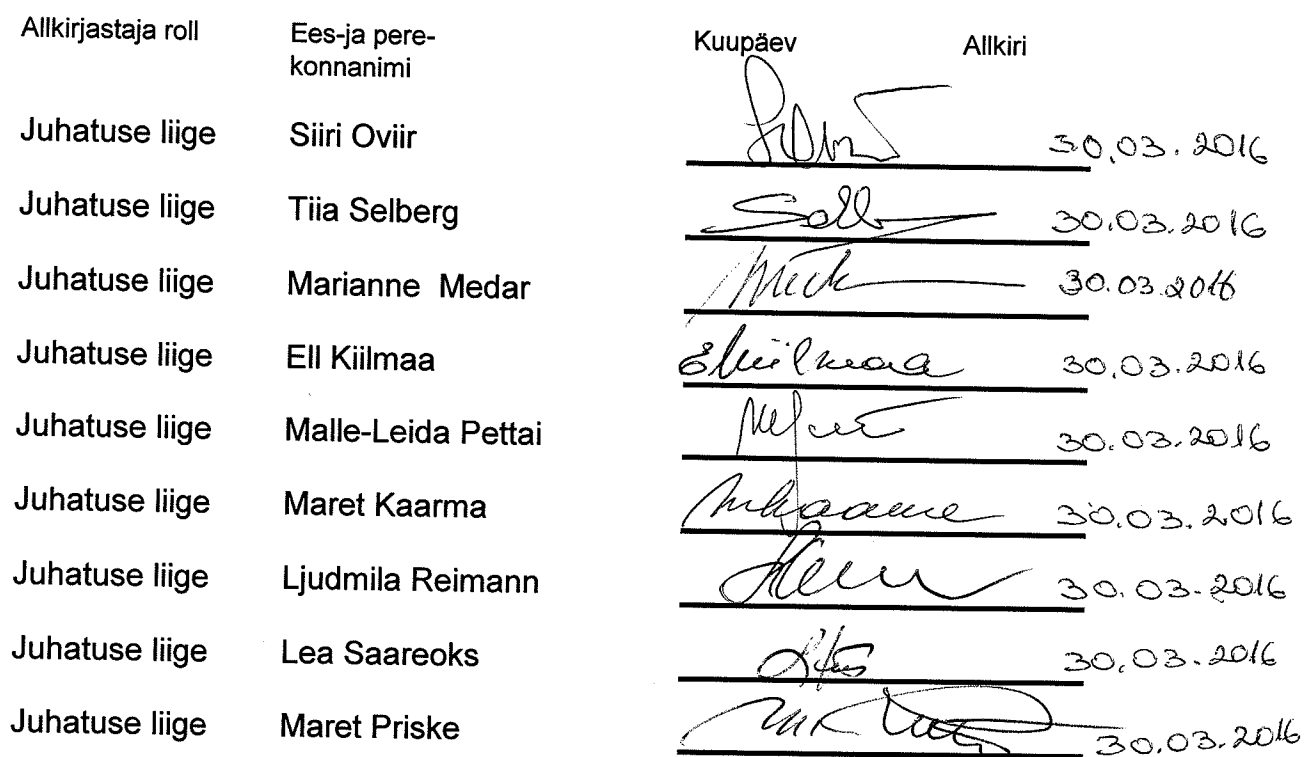 Allkirjastaja roll Ees-ja pere- Kuupäev Allkiri
konnanimi
Juhatuse liige Siiri Oviir 30.03.2016
Juhatuse liige Tiia Selberg 30.03.2016
Juhatuse liige Marianne Medar 30.03.2016
Juhatuse liige Ell Kiilmaa EKiilmaa 30.03.2016
Juhatuse liige Malle-Leida Pettai 30.03.2016
Juhatuse liige Maret Kaarma 30.03.2016
Juhatuse liige Ljudmila Reimann 30.03.2016
Juhatuse liige Lea Saareoks 30.03.2016
Juhatuse liige Maret Priske 30.03.2016